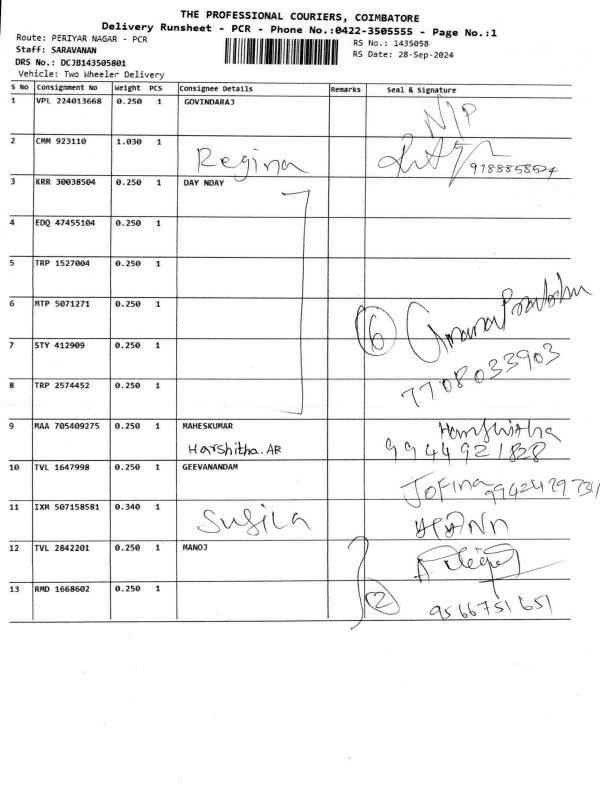 THE PROFESSIONAL COURIERS, COIMBATORE
Delivery Runsheet - PCR - Phone No.:0422-3505555 - Page No.:1
Route: PERIYAR NAGAR - PCR RS No.: 1435058
Staff: SARAVANAN RS Date: 28-Sep-2024
DRS No.: DCJB143505801
Vehicle: Two Wheeler Delivery
S No Consignment No Weight PCS Consignee Details Remarks Seal & Signature
1 VPL 224013668 0.250 1 GOVINDARAJ N/P
2 CMM 923110 1.030 1 Regina 9788858524
3 KRR 30038504 0.250 1 DAY NDAY
4 EDQ 47455104 0.250 1
5 TRP 1527004 0.250 1
6 MTP 5071271 0.250 1 6
7 STY 412909 0.250 1 7708033903
8 TRP 2574452 0.250 1
9 MAA 705409275 0.250 1 MAHESKUMAR Harshitha
Harshitha. AB 9944921828
10 TVL 1647998 0.250 1 GEEVANANDAM Jofina
11 IXM 507158581 0.340 1 Sugila
12 TVL 2842201 0.250 1 MANOJ
13 RMD 1668602 0.250 1 2 9566751651